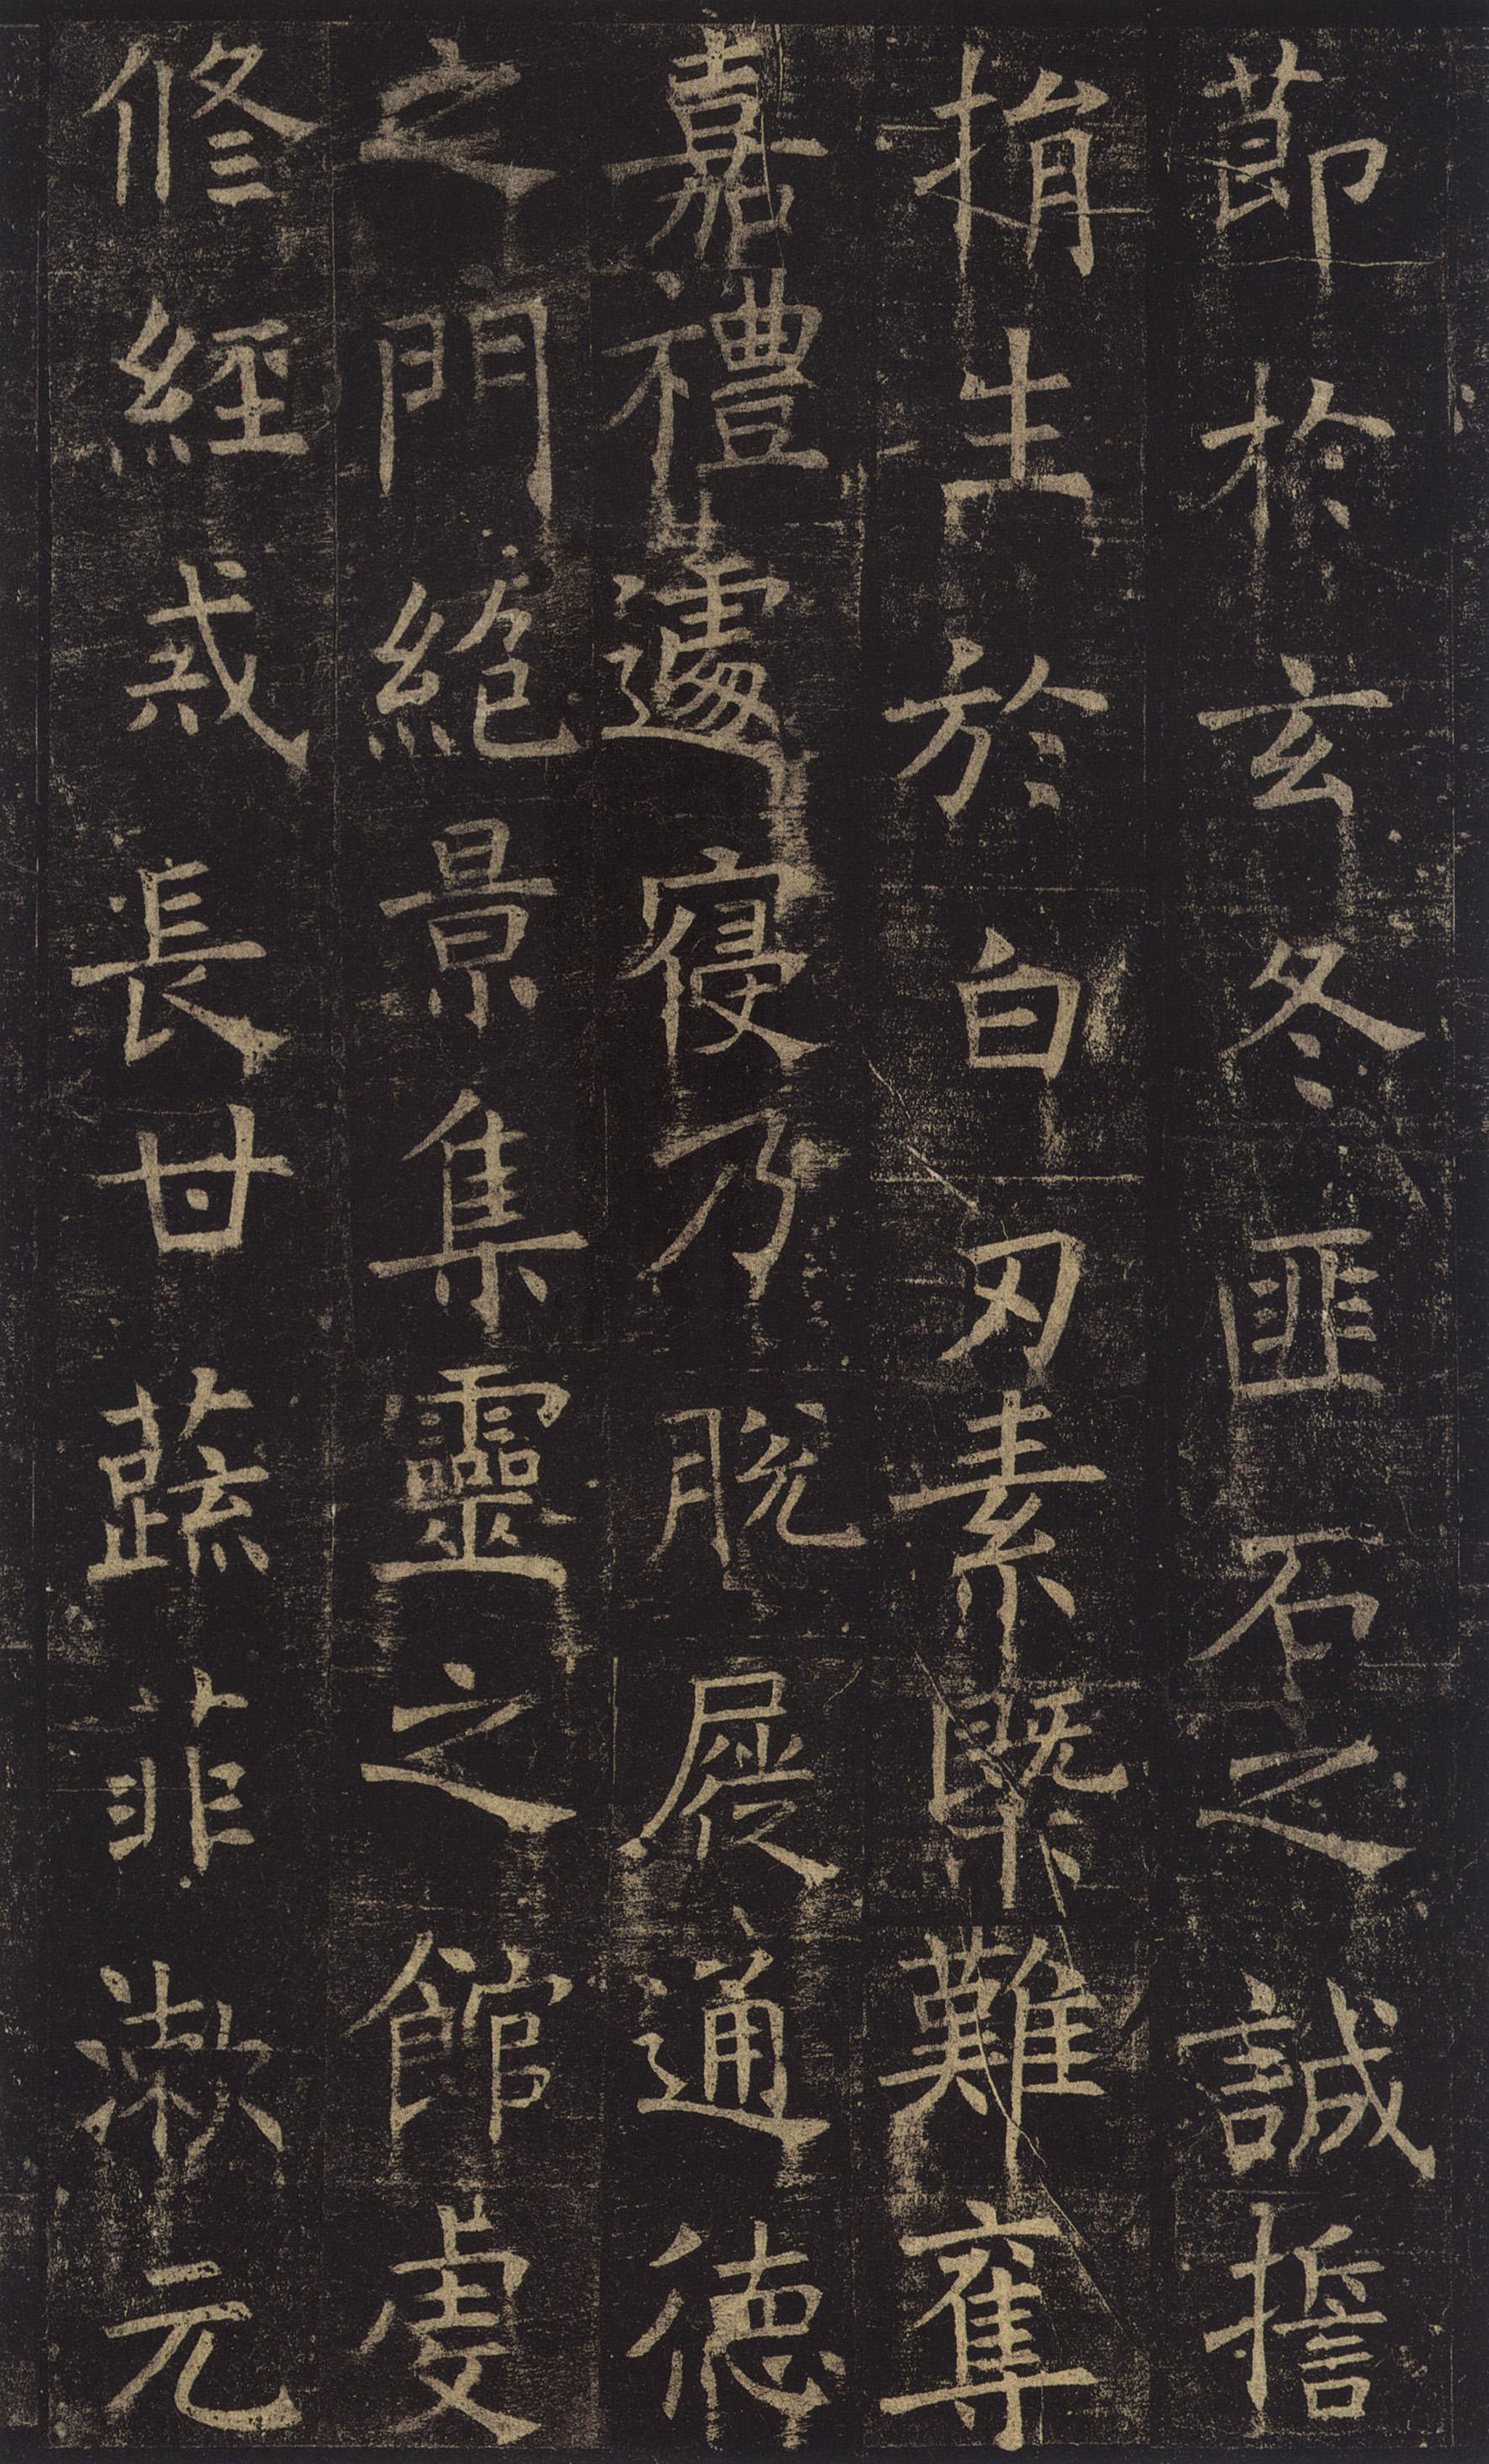 節於玄冬匪石之誠誓
捐生於白刃素槩難奪
嘉禮遽寑乃脫屣通德
之門絕景集靈之館虔
修經戒長甘蔬菲漱元